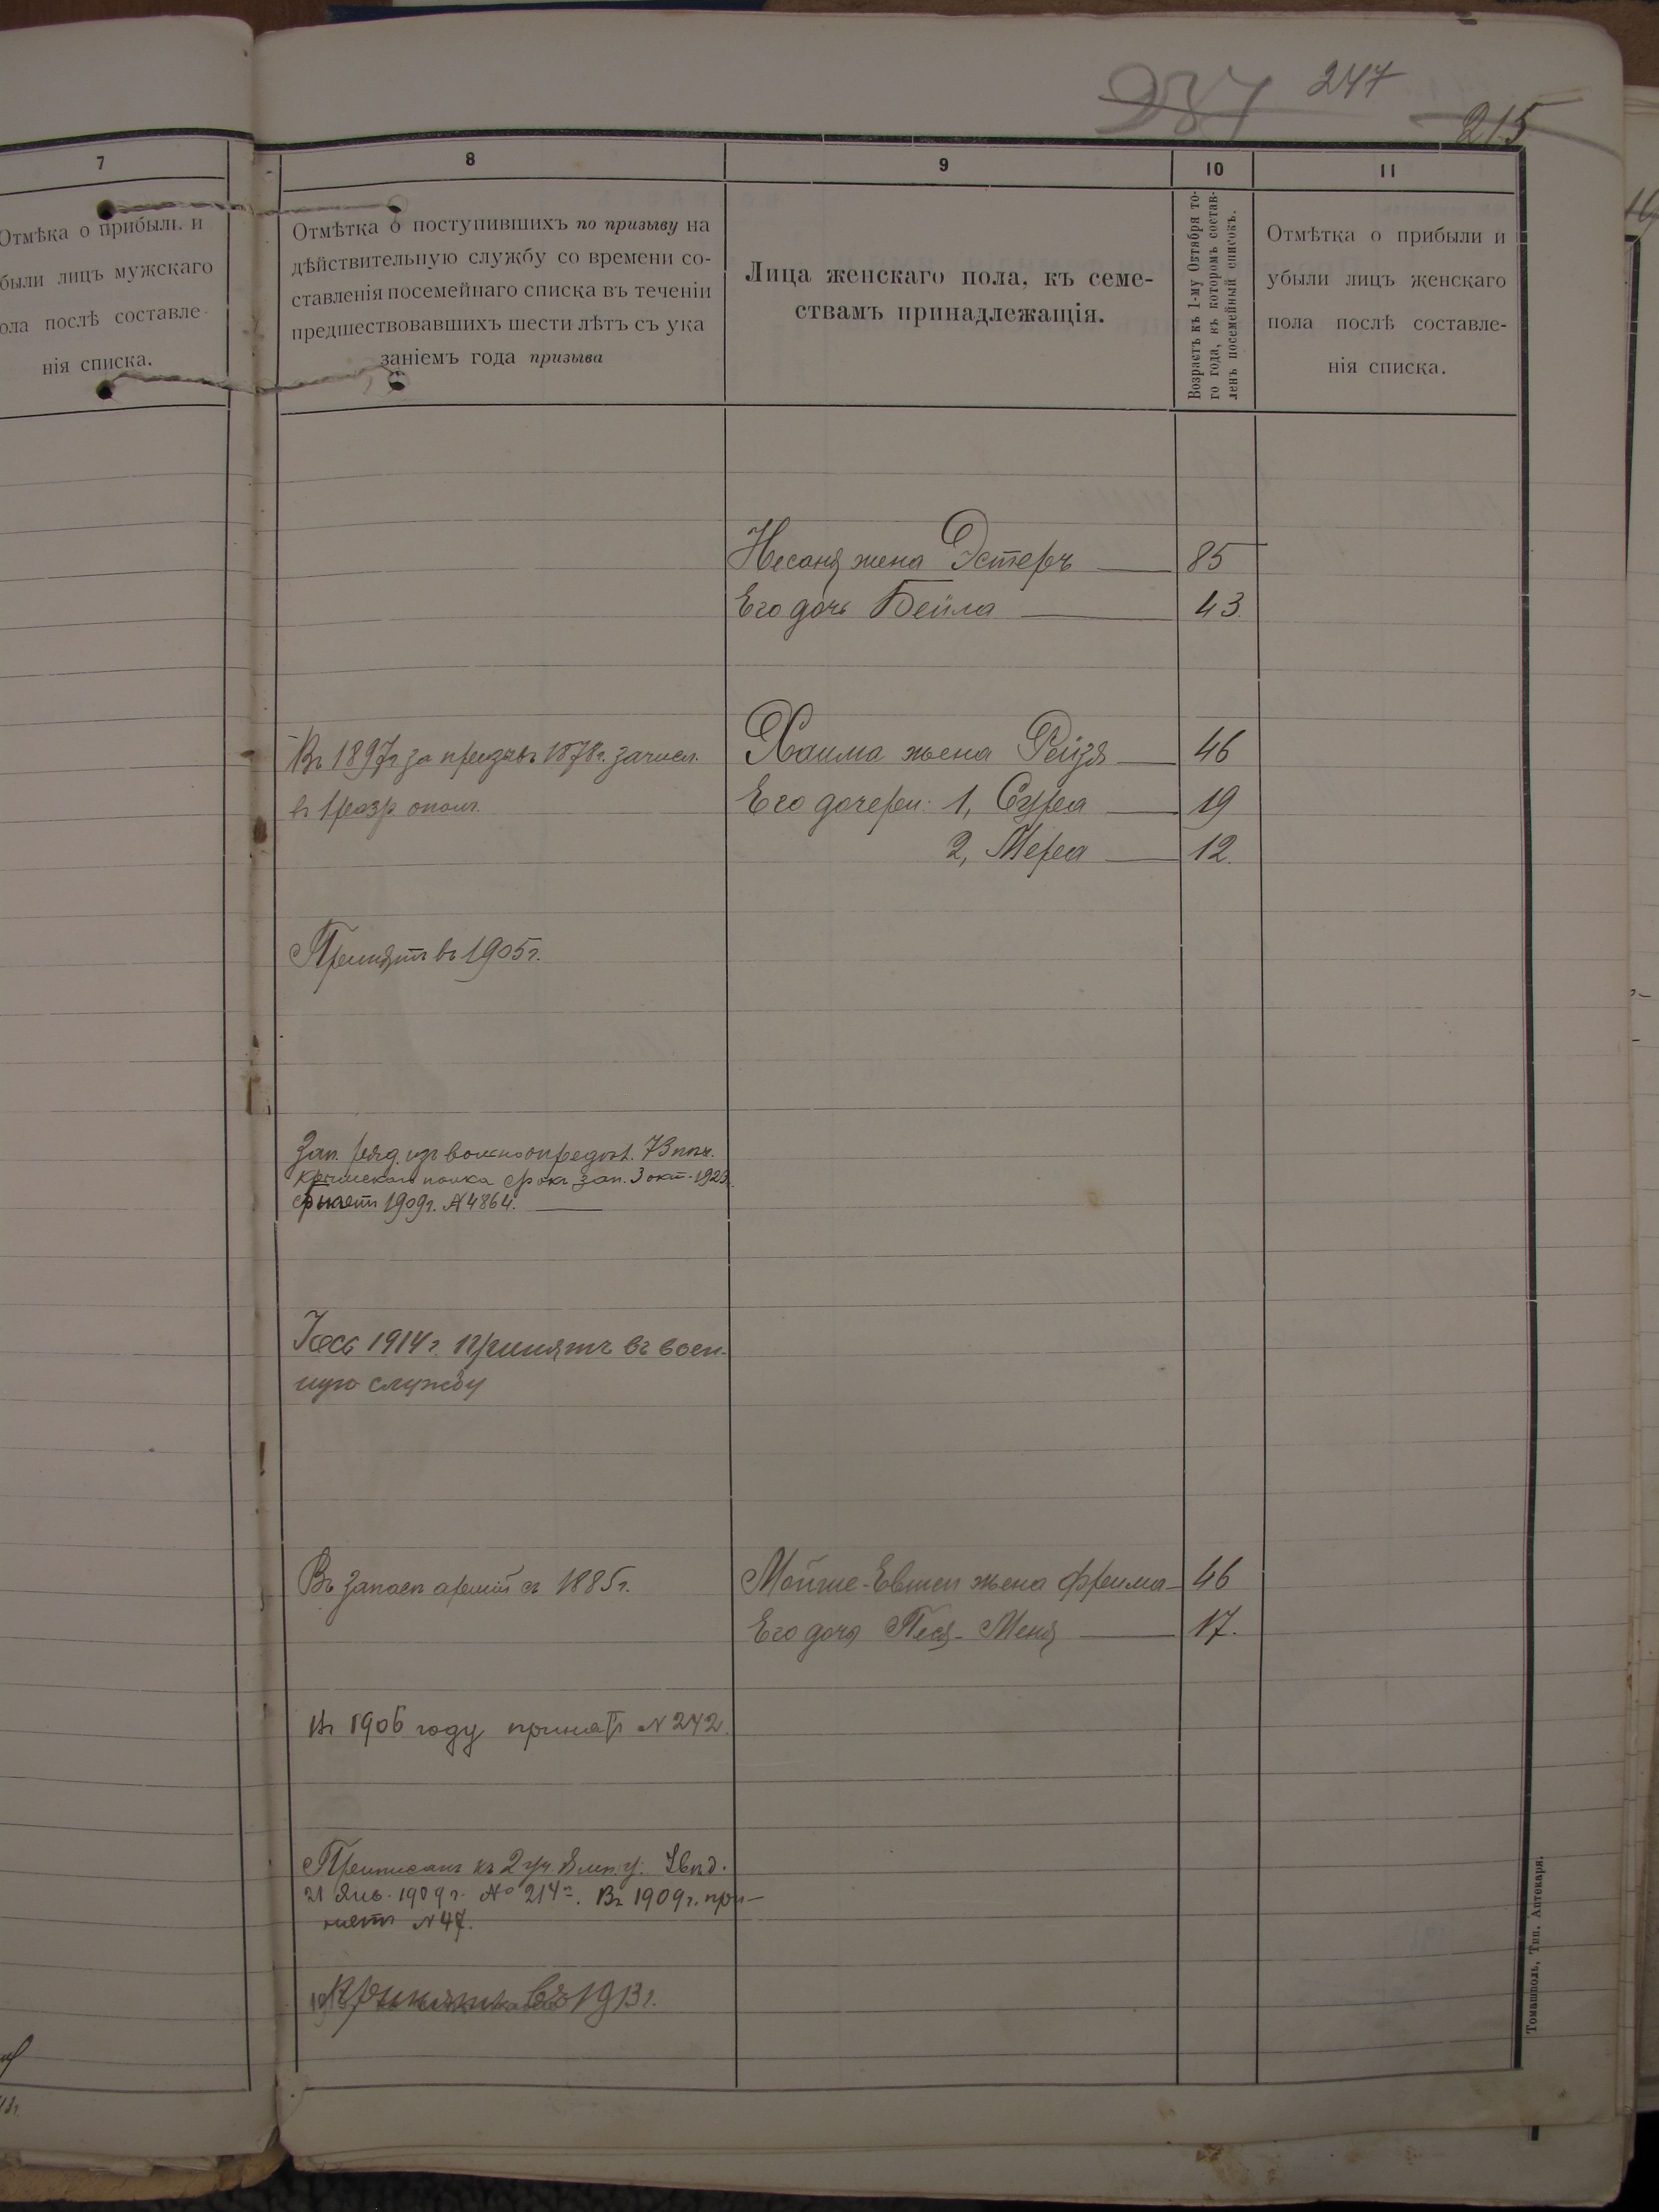 237 247
215
7
8
9
10
11
Отмѣка о прибыли. и
были лицъ мужскаго
ола послѣ составле-
нія списка.
Отмѣтка о поступившихъ по призыву на
дѣйствительную службу со времени со-
ставленія посемейнаго списка въ теченіи
предшествовавшихъ шести лѣтъ съ ука
заніемъ года призыва
Лица женскаго пола, къ семе-
ствамъ принадлежащія.
Возрастъ къ 1-му Октября то-
го года, къ которомъ состав-
ленъ посемейный списокъ.
Отмѣтка о прибыли и
убыли лицъ женскаго
пола послѣ составле-
нія списка.
Несаня жена Эстеръ 85
Его дочь Бейла 43.
Въ 1897г за призывъ 1878г. зачисл.
в 1 разр. ополч.
Хаима жена Рейзя 46
Его дочери: 1, Сура 19
2, Мера 12.
Принятъ въ 1905г.
Зап. ряд. изъ вольноопредѣл. 73 пѣх.
Крымскаго полка срокъ зап. 3 окт. 1923
1909г. №4864.
Іось 1914г. принятъ въ воен-
ную службу
Въ запасѣ арміи съ 1885г.
Мойше-Евшеи жена Фрима 46
Его дочь Песя-Меня 17.
Въ 1906 году принятъ №242.
Приписанъ къ 2 уч. Ямп. у. Свид.
21 Янв. 1909г. № 214. Въ 1909г. при-
нятъ №47.
Принятъ въ 1913г.
Томашполь, Тип. Аптекаря.